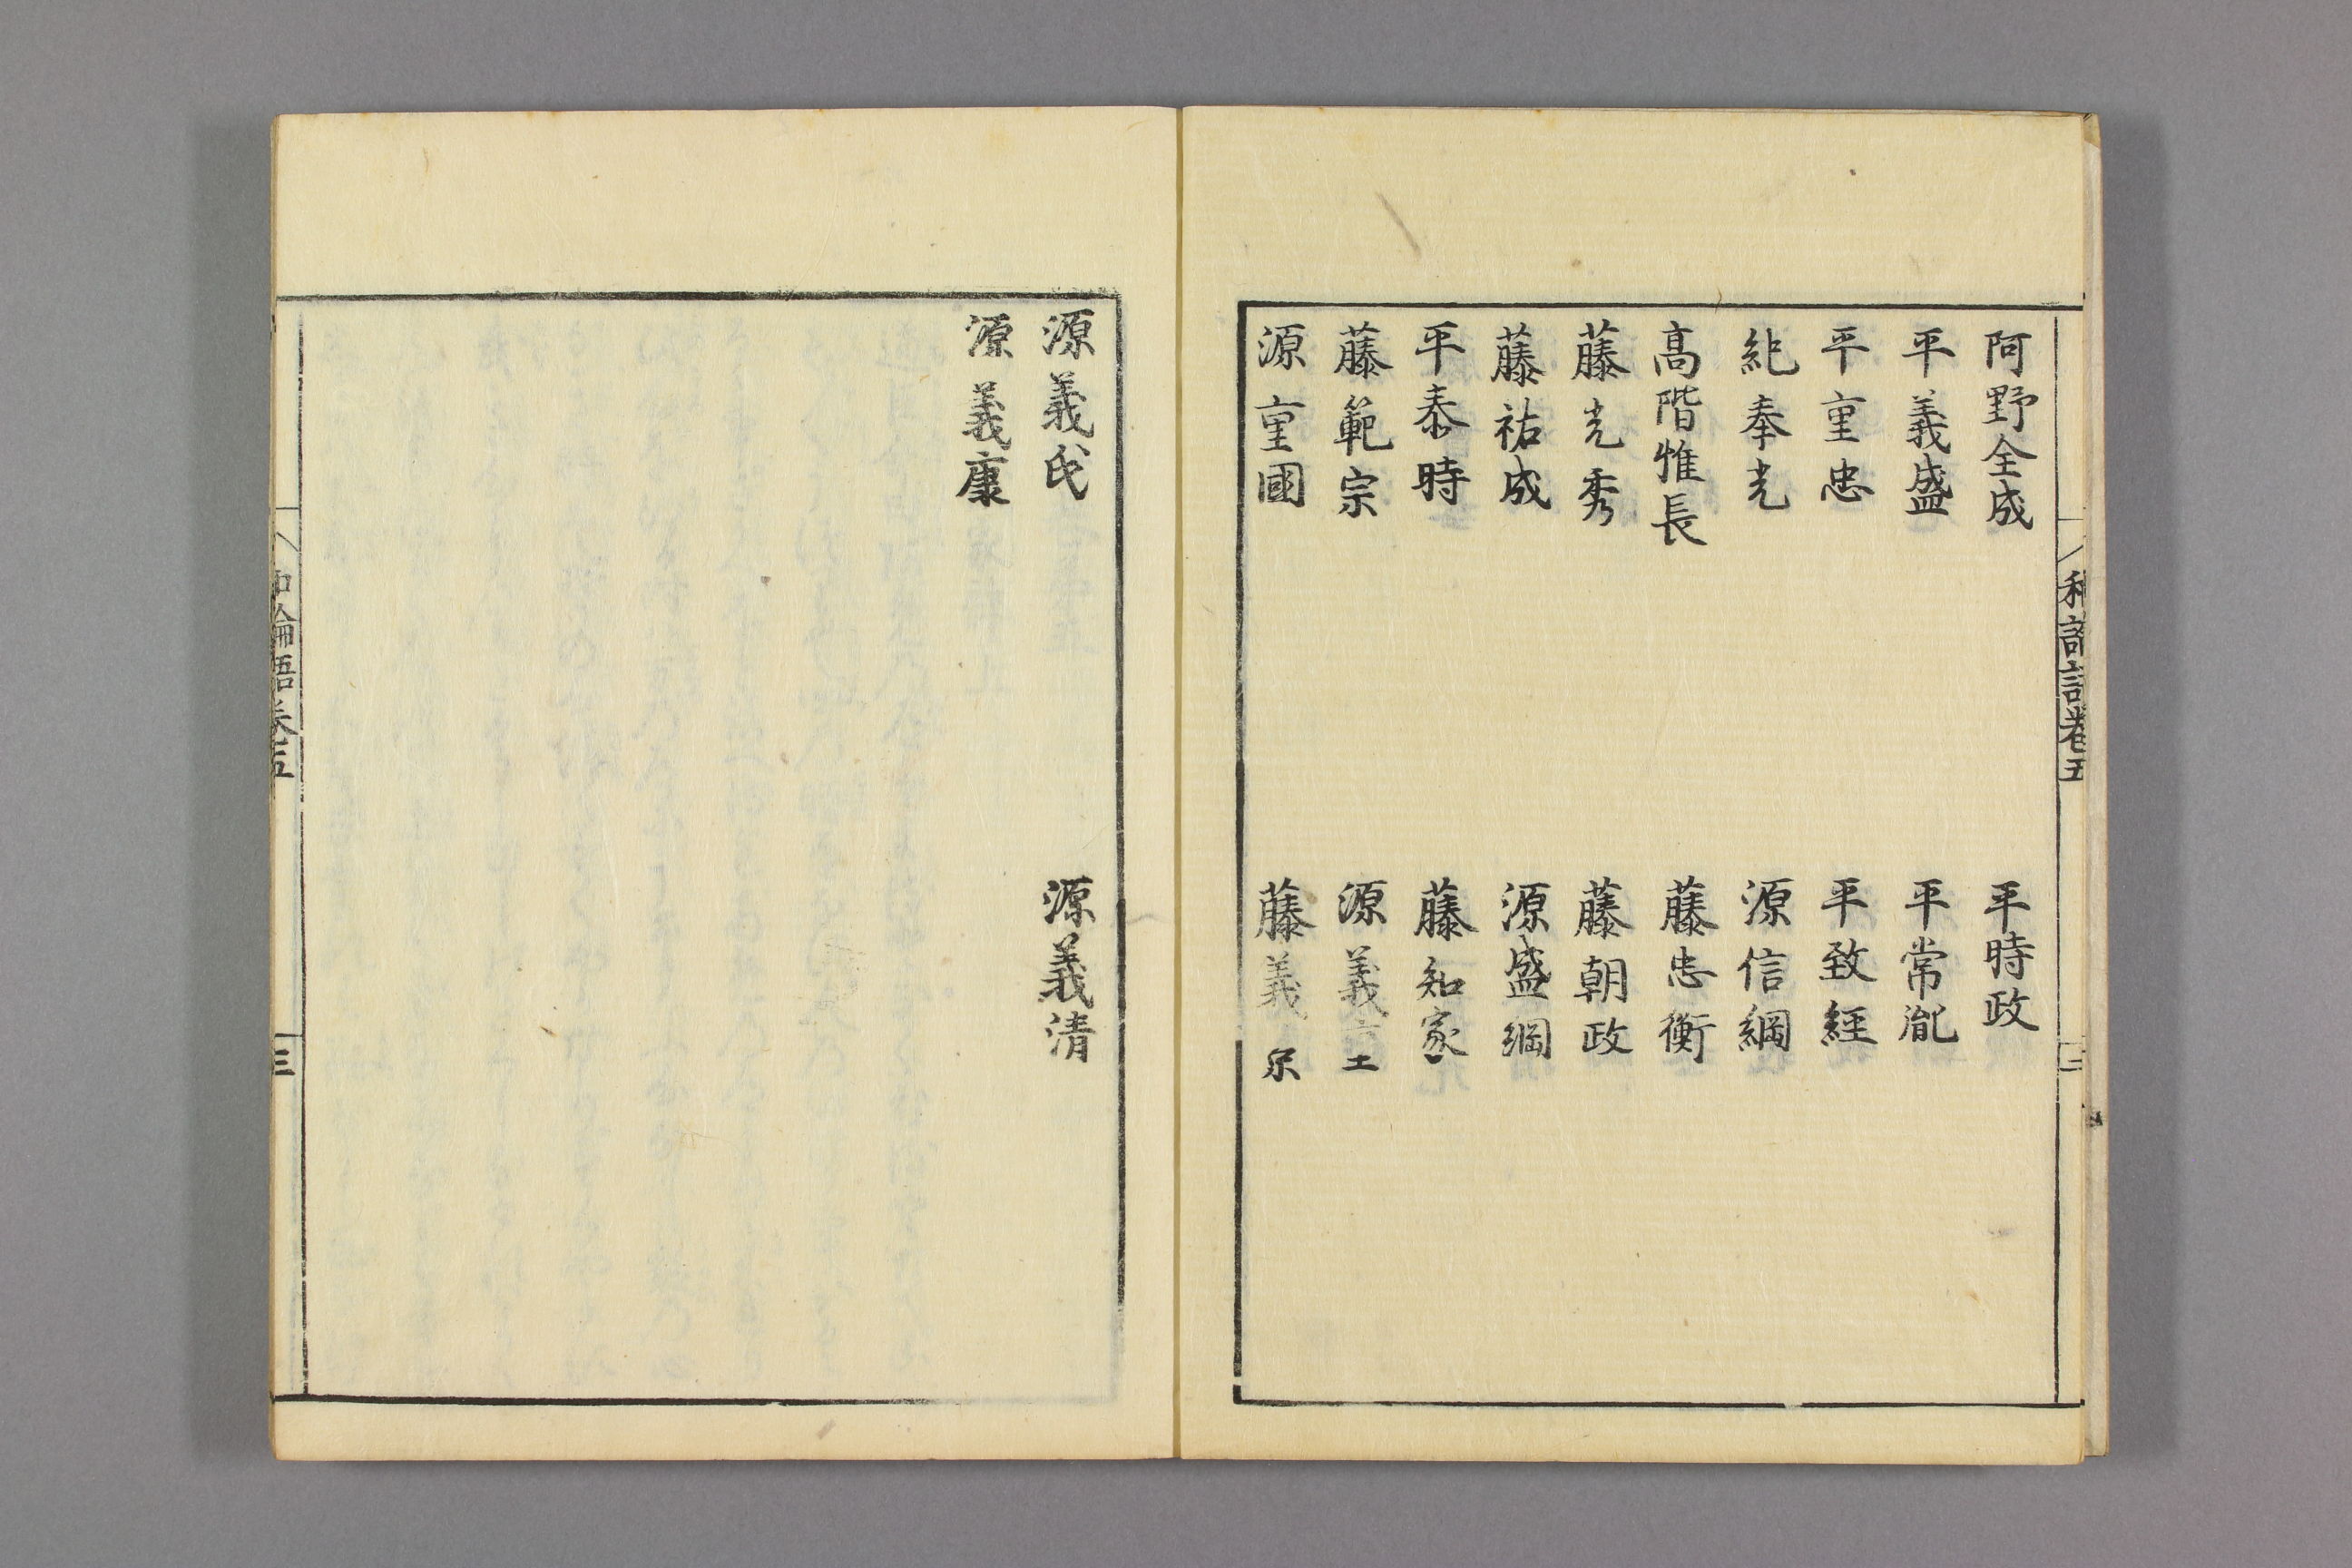 阿野全成
平時政
平義盛
平常胤
平重忠
平致經
紀奉光
源信綱
高階惟長
藤忠衡
藤光秀
藤朝政
藤祐成
源盛綱
平泰時
藤知家
藤範宗
源義
源重國
藤義
源義氏
源義清
源義康
論語卷五
三